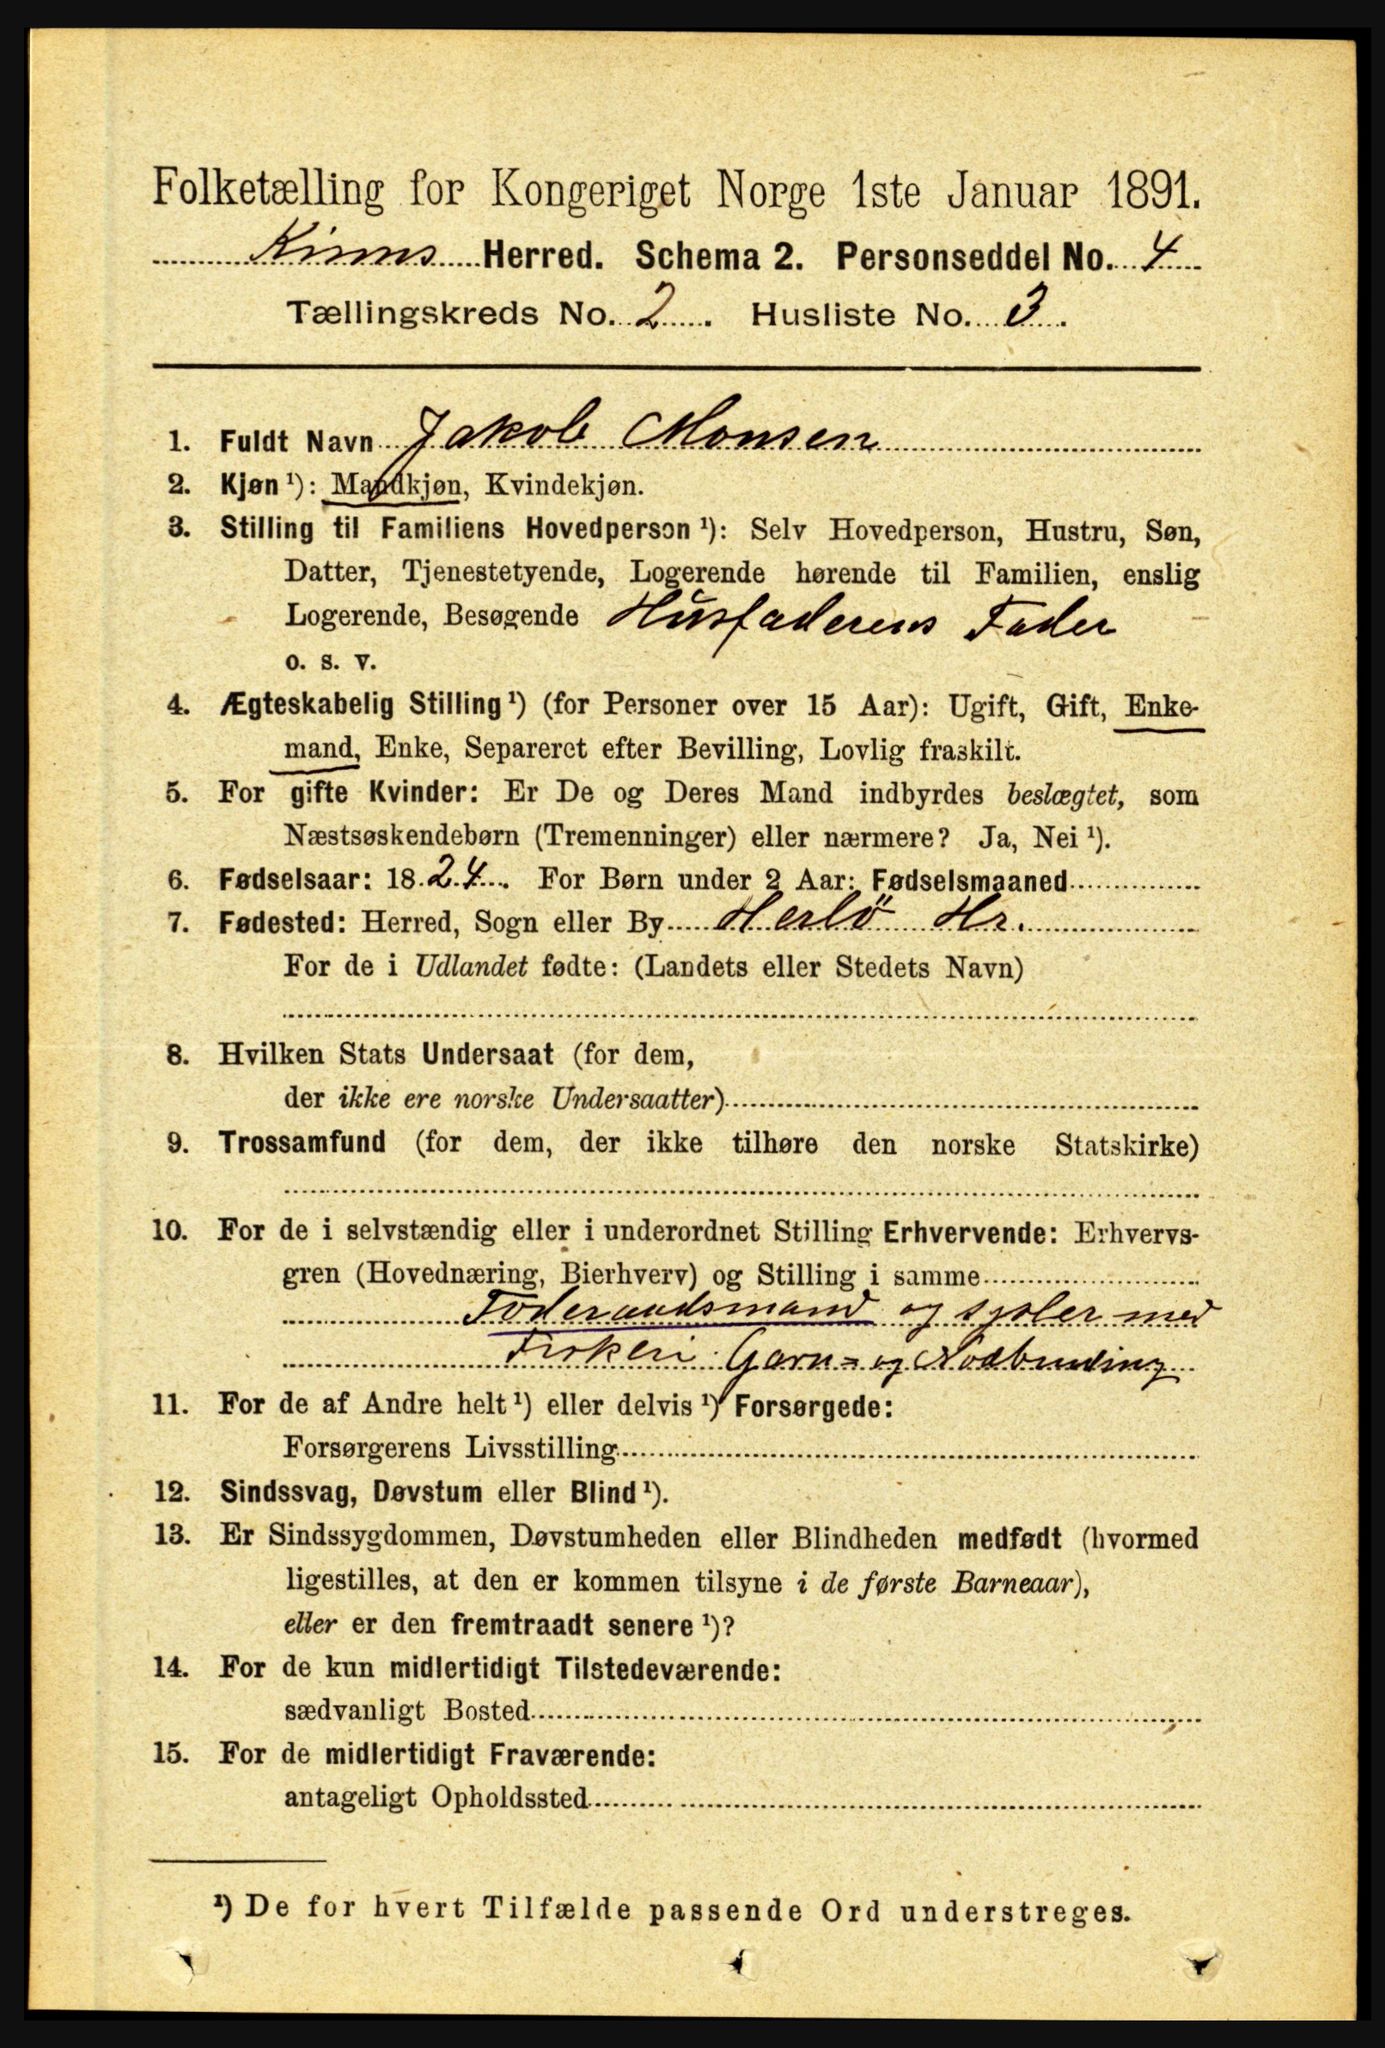 Folketælling for Kongeriget Norge 1ste Januar 1891.
Kinns Herred. Schema 2. Personseddel No. 4
Tællingskreds No. 2. Husliste No. 3.
1. Fuldt Navn Jakob Monsen
2. Kjøn ¹): Mandkjøn, Kvindekjøn.
3. Stilling til Familiens Hovedperson ¹): Selv Hovedperson, Hustru, Søn,
Datter, Tjenestetyende, Logerende hørende til Familien, enslig
Logerende, Besøgende Husfaderens Fader
o. s. v.
4. Ægteskabelig Stilling ¹) (for Personer over 15 Aar): Ugift, Gift, Enke-
mand, Enke, Separeret efter Bevilling, Lovlig fraskilt.
5. For gifte Kvinder: Er De og Deres Mand indbyrdes beslægtet, som
Næstsøskendebørn (Tremenninger) eller nærmere? Ja, Nei ¹).
6. Fødselsaar: 1824. For Børn under 2 Aar: Fødselsmaaned
7. Fødested: Herred, Sogn eller By Herlö Hr.
For de i Udlandet fødte: (Landets eller Stedets Navn)
8. Hvilken Stats Undersaat (for dem,
der ikke ere norske Undersaatter)
9. Trossamfund (for dem, der ikke tilhøre den norske Statskirke)
10. For de i selvstændig eller i underordnet Stilling Erhvervende: Erhvervs-
gren (Hovednæring, Bierhverv) og Stilling i samme
Föderaadsmand og sysler med
Fiskeri Garn- og Nodbinding
11. For de af Andre helt ¹) eller delvis ¹) Forsørgede:
Forsørgerens Livsstilling
12. Sindssvag, Døvstum eller Blind ¹).
13. Er Sindssygdommen, Døvstumheden eller Blindheden medfødt (hvormed
ligestilles, at den er kommen tilsyne i de første Barneaar),
eller er den fremtraadt senere ¹)?
14. For de kun midlertidigt Tilstedeværende:
sædvanligt Bosted
15. For de midlertidigt Fraværende:
antageligt Opholdssted
¹) De for hvert Tilfælde passende Ord understreges.